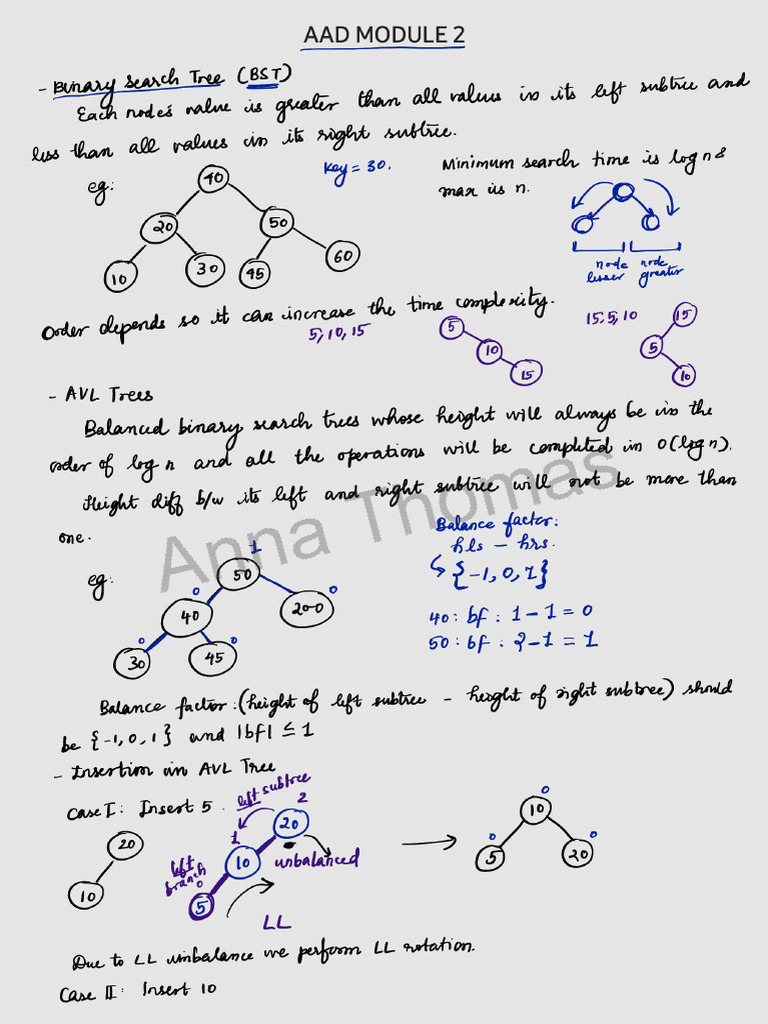 AAD MODULE 2
- Binary Search Tree (BST)
Each node's value is greater than all values in its left subtree and
less than all values in its right subtree.
eg:
40
20
50
10
30
45
60
Key = 30.
Minimum search time is log n &
max is n.
node
lesser
node
greater
Order depends so it can increase the time complexity.
5, 10, 15
5
10
15
15, 5, 10
15
5
10
- AVL Trees
Balanced binary search trees whose height will always be in the
order of log n and all the operations will be completed in O(log n).
Height diff b/w its left and right subtree will not be more than
one.
Anna Thomas
eg:
1
50
0
40
200
0
0
30
0
45
Balance factor:
hls - hrs.
↳ {-1, 0, 1}
40: bf : 1 - 1 = 0
50: bf : 2 - 1 = 1
Balance factor: (height of left subtree - height of right subtree) should
be {-1, 0, 1} and |bf| ≤ 1
- Insertion in AVL Tree
Case I: Insert 5.
20
10
left subtree
2
20
1
10
left
branch
0
5
unbalanced
LL
0
10
0
5
0
20
Due to LL imbalance we perform LL rotation.
Case II: Insert 10